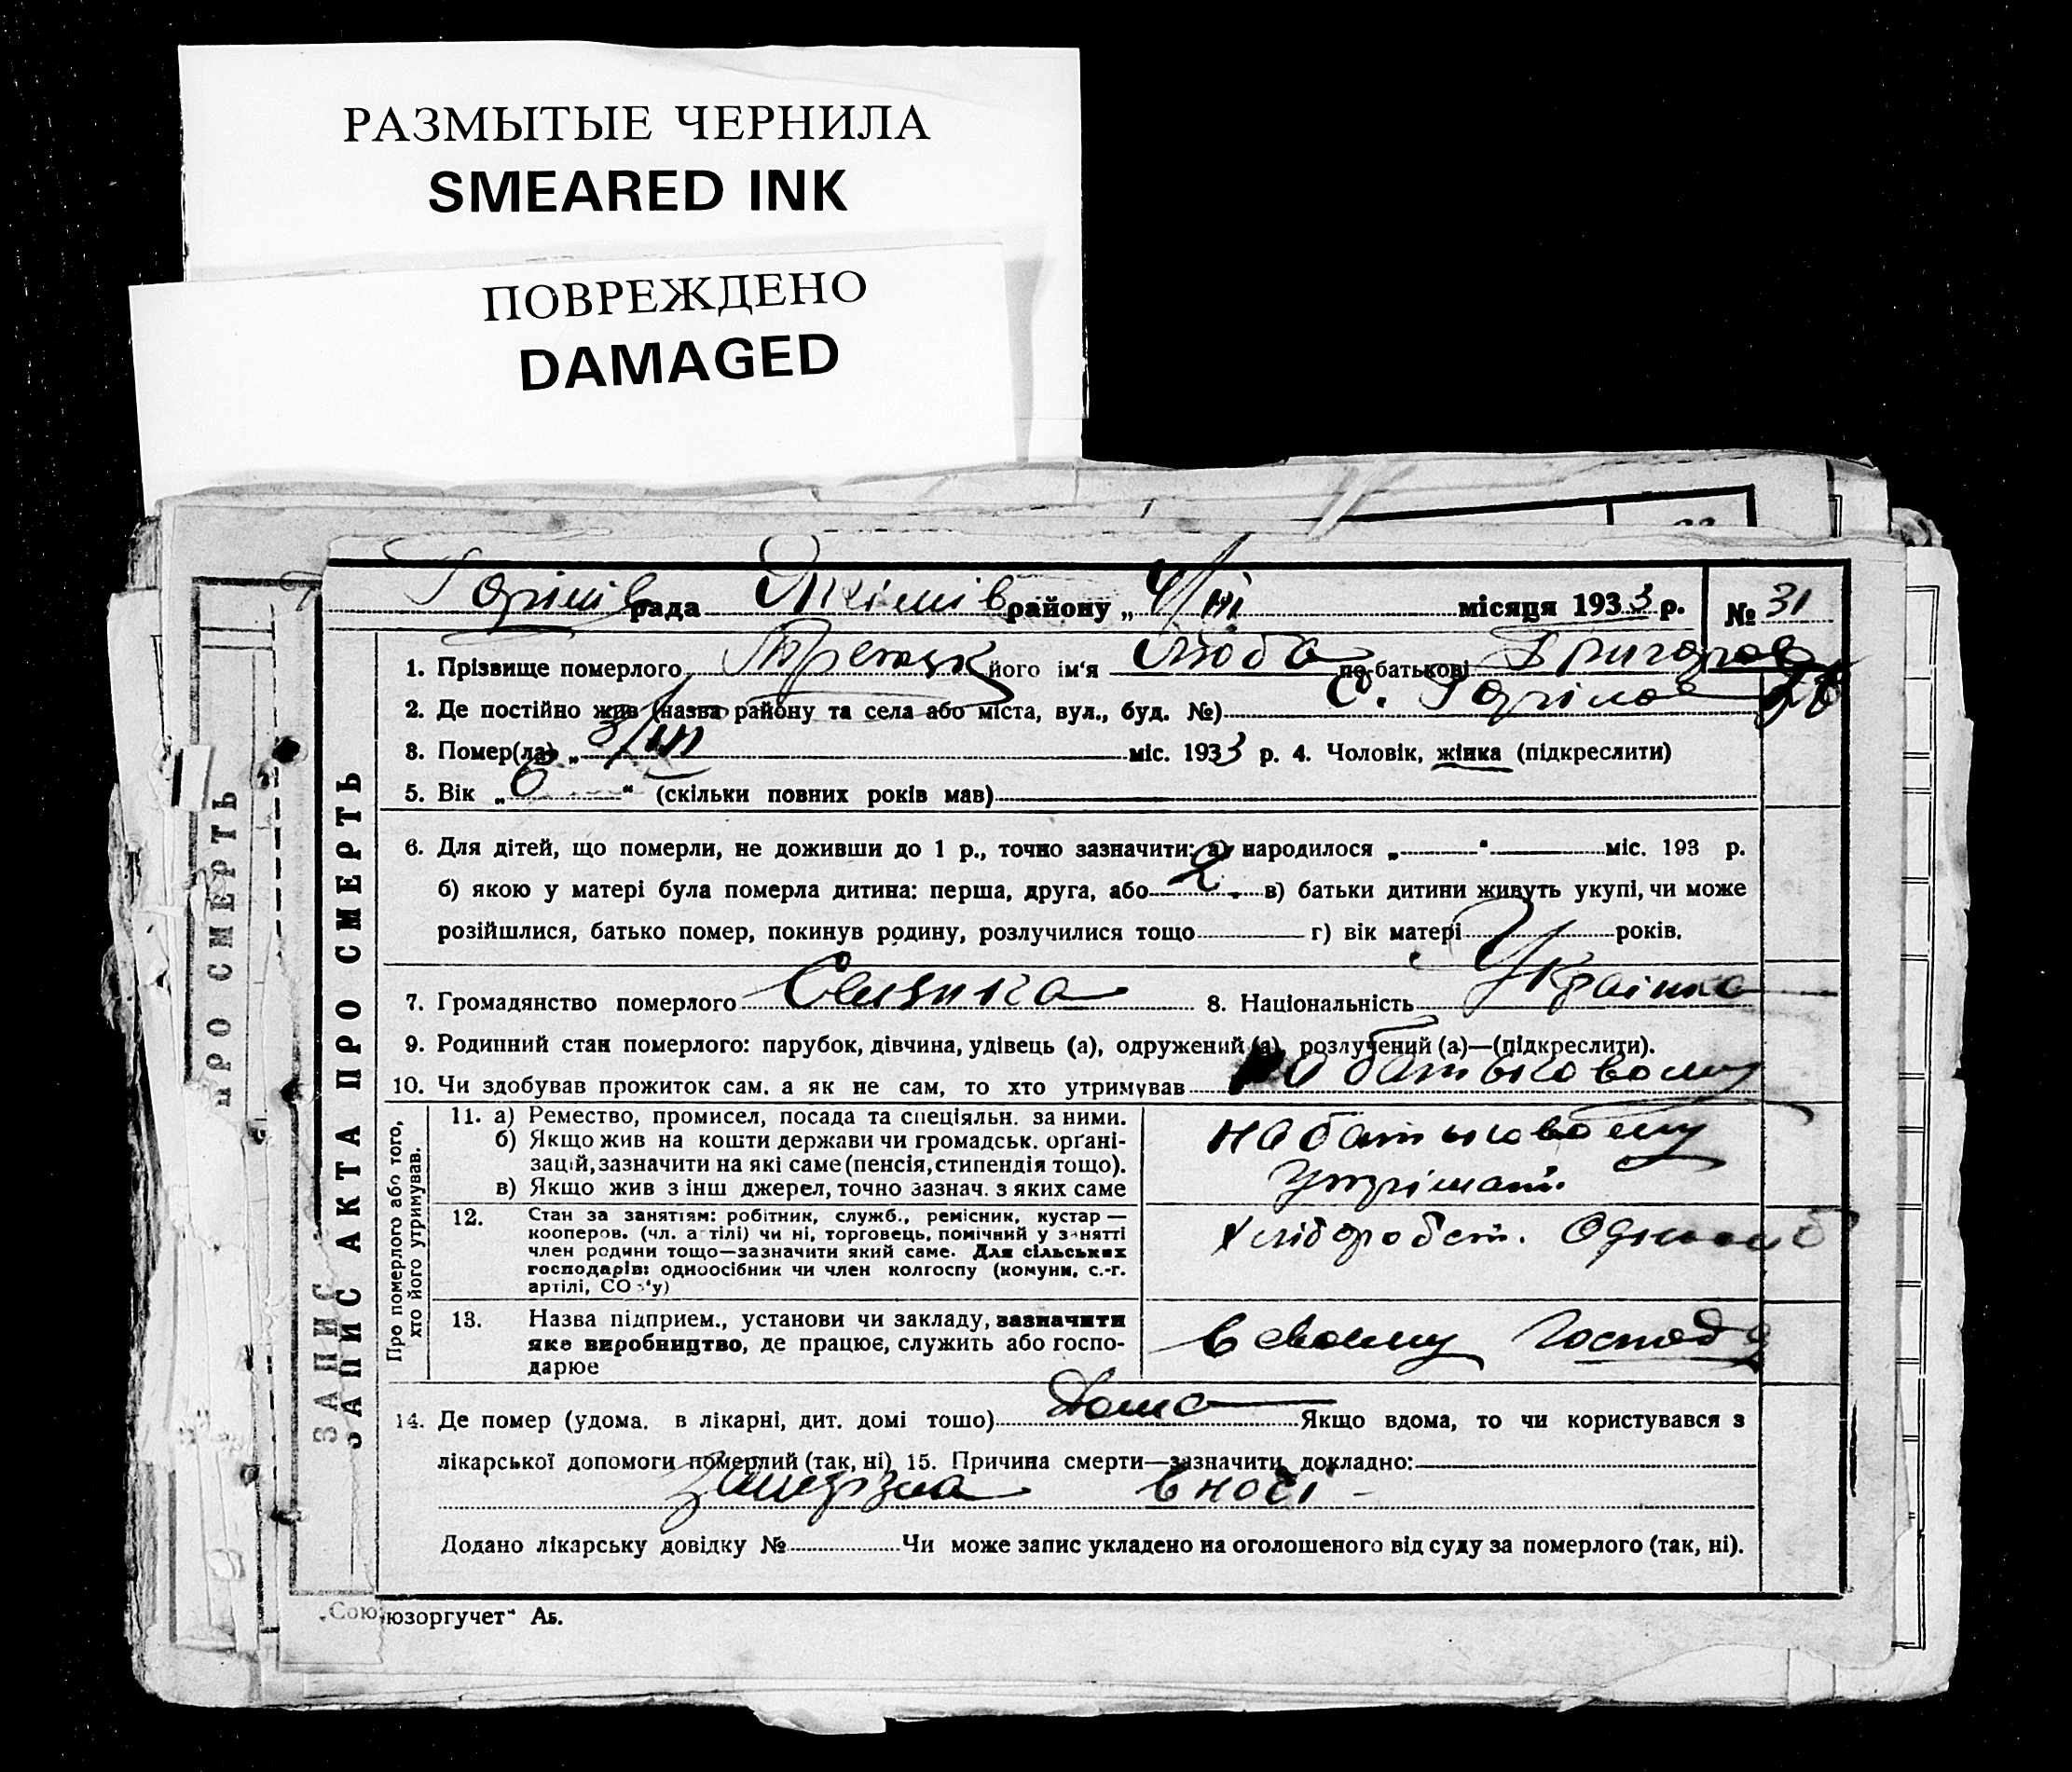 РАЗМЫТЫЕ ЧЕРНИЛА
SMEARED INK
ПОВРЕЖДЕНО
DAMAGED
рада району „4/III місяця 1933 р. № 31
1. Прізвище померлого його ім'я Люба по-батькові Григоров
2. Де постійно жив (назва району та села або міста, вул., буд. №) с.
3. Помер(ла) „3/III міс. 1933 р. 4. Чоловік, жінка (підкреслити)
5. Вік „6“ (скільки повних років мав)
6. Для дітей, що померли, не доживши до 1 р., точно зазначити: а) народилося „ “ міс. 193 р.
б) якою у матері була померла дитина: перша, друга, або 2 в) батьки дитини живуть укупі, чи може
розійшлися, батько помер, покинув родину, розлучилися тощо г) вік матері років.
7. Громадянство померлого 8. Національність Українка
9. Родинний стан померлого: парубок, дівчина, удівець (а), одружений (а), розлучений (а)—(підкреслити).
10. Чи здобував прожиток сам, а як не сам, то хто утримував на батьковому
Про померлого або того, хто його утримував.
11. а) Ремество, промисел, посада та спеціяльн. за ними.
б) Якщо жив на кошти держави чи громадськ. орґані-
зацій, зазначити на які саме (пенсія, стипендія тощо).
в) Якщо жив з інш джерел, точно зазнач. з яких саме
на батьковому
утрімані
12. Стан за заняттям: робітник, служб., ремісник, кустар—
кооперов. (чл. артілі) чи ні, торговець, помічний у занятті
член родини тощо—зазначити який саме. Для сільських
господарів: одноосібник чи член колгоспу (комуни, с.-г.
артілі, СО у)
хлібороб
13. Назва підприєм., установи чи закладу, зазначити
яке виробництво, де працює, служить або госпо-
дарює
в своему господ
14. Де помер (удома, в лікарні, дит. домі тощо) Дома Якщо вдома, то чи користувався з
лікарської допомоги померлий (так, ні) 15. Причина смерти—зазначити докладно:
замерзла
Додано лікарську довідку № Чи може запис укладено на оголошеного від суду за померлого (так, ні).
ЗАПИС АКТА ПРО СМЕРТЬ
ЗАПИС
ПРО СМЕРТЬ
„Сою
юзоргучет“ Аб.